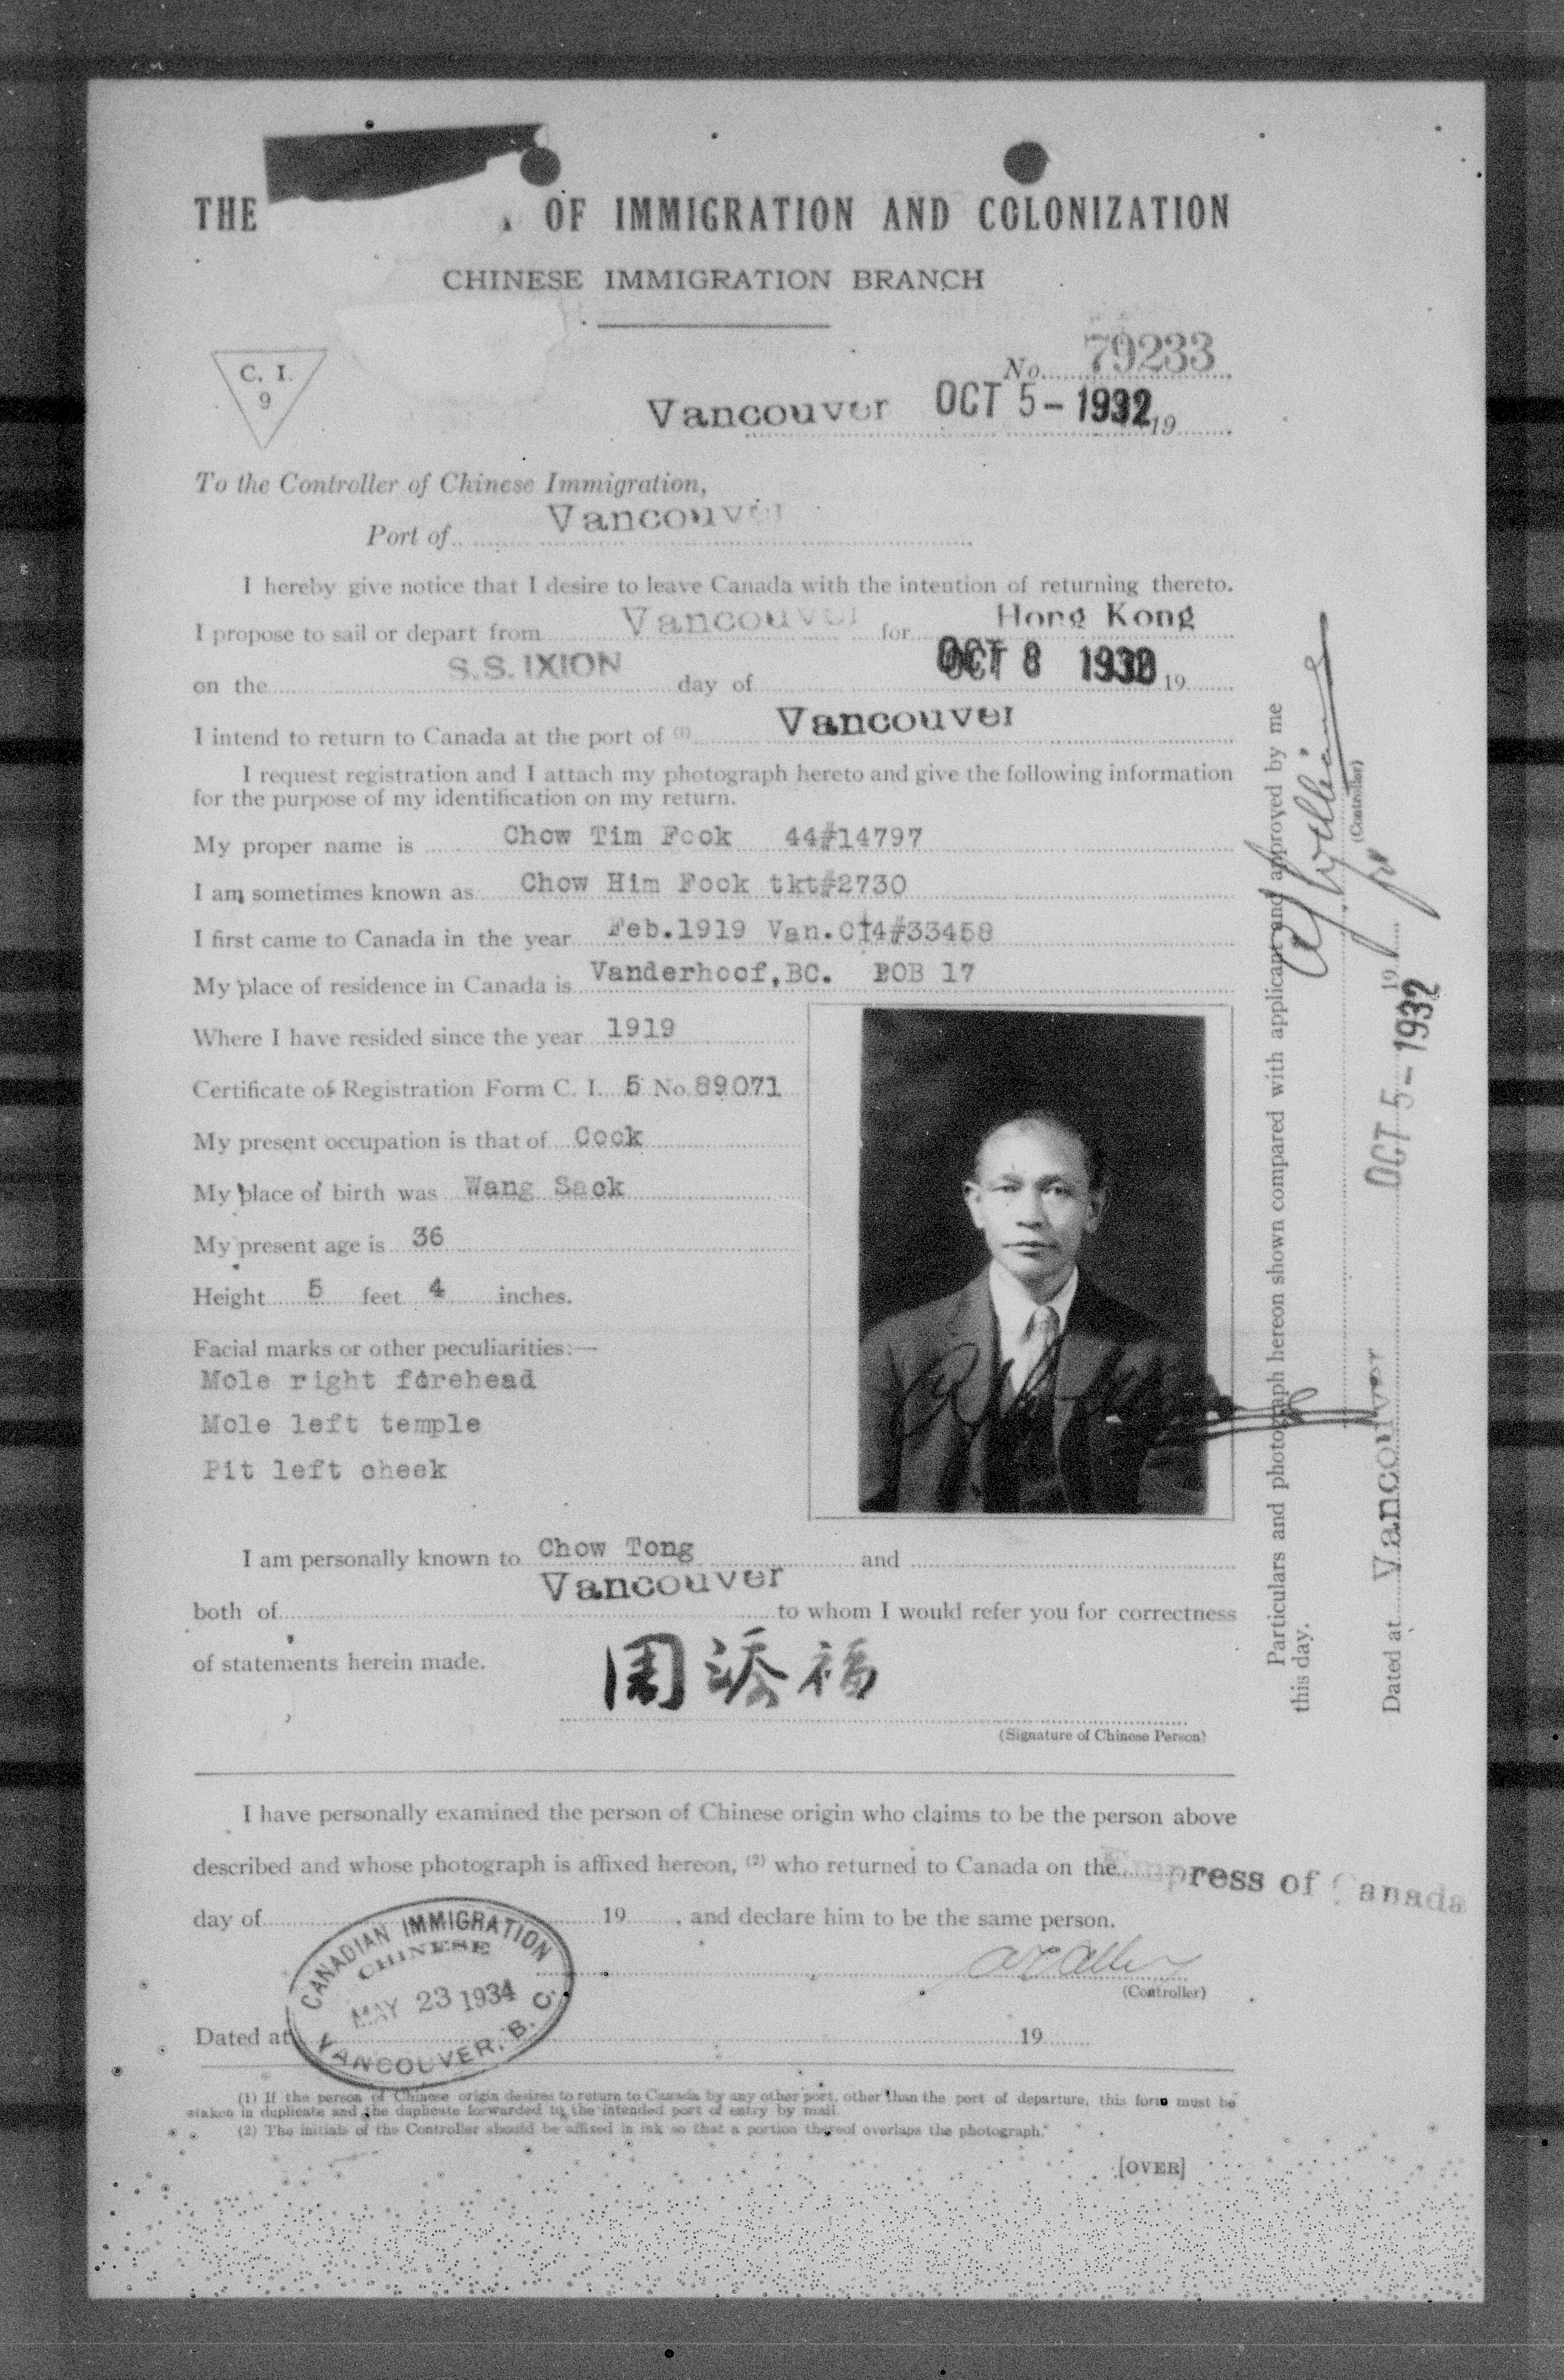 THE OF IMMIGRATION AND COLONIZATION
CHINESE IMMIGRATION BRANCH
C. I.
9
No. 79233
Vancouver OCT 5 - 1932 19
To the Controller of Chinese Immigration,
Port of Vancouver
I hereby give notice that I desire to leave Canada with the intention of returning thereto.
I propose to sail or depart from Vancouver for Hong Kong
on the S.S. IXION day of OCT 8 1932 19
I intend to return to Canada at the port of (1) Vancouver
I request registration and I attach my photograph hereto and give the following information
for the purpose of my identification on my return.
My proper name is Chow Tim Fook 44#14797
I am sometimes known as Chow Him Fook tkt#2730
I first came to Canada in the year Feb.1919 Van.CI4#33458
My place of residence in Canada is Vanderhoof,BC. POB 17
Where I have resided since the year 1919
Certificate of Registration Form C. I. 5 No. 89071
My present occupation is that of Cook
My place of birth was Wang Sack
My present age is 36
Height 5 feet 4 inches.
Facial marks or other peculiarities:—
Mole right forehead
Mole left temple
Pit left cheek
I am personally known to Chow Tong and
both of Vancouver to whom I would refer you for correctness
of statements herein made.
周添福
(Signature of Chinese Person)
I have personally examined the person of Chinese origin who claims to be the person above
described and whose photograph is affixed hereon, (2) who returned to Canada on the Empress of Canada
day of 19 , and declare him to be the same person.
(Controller)
CANADIAN IMMIGRATION
CHINESE
MAY 23 1934
VANCOUVER, B. C.
Dated at 19
(1) If the person of Chinese origin desires to return to Canada by any other port, other than the port of departure, this form must be
taken in duplicate and the duplicate forwarded to the intended port of entry by mail.
(2) The initials of the Controller should be affixed in ink so that a portion thereof overlaps the photograph.
[OVER]
Particulars and photograph hereon shown compared with applicant and approved by me
this day.
(Controller)
Dated at Vancouver OCT 5 - 1932 19